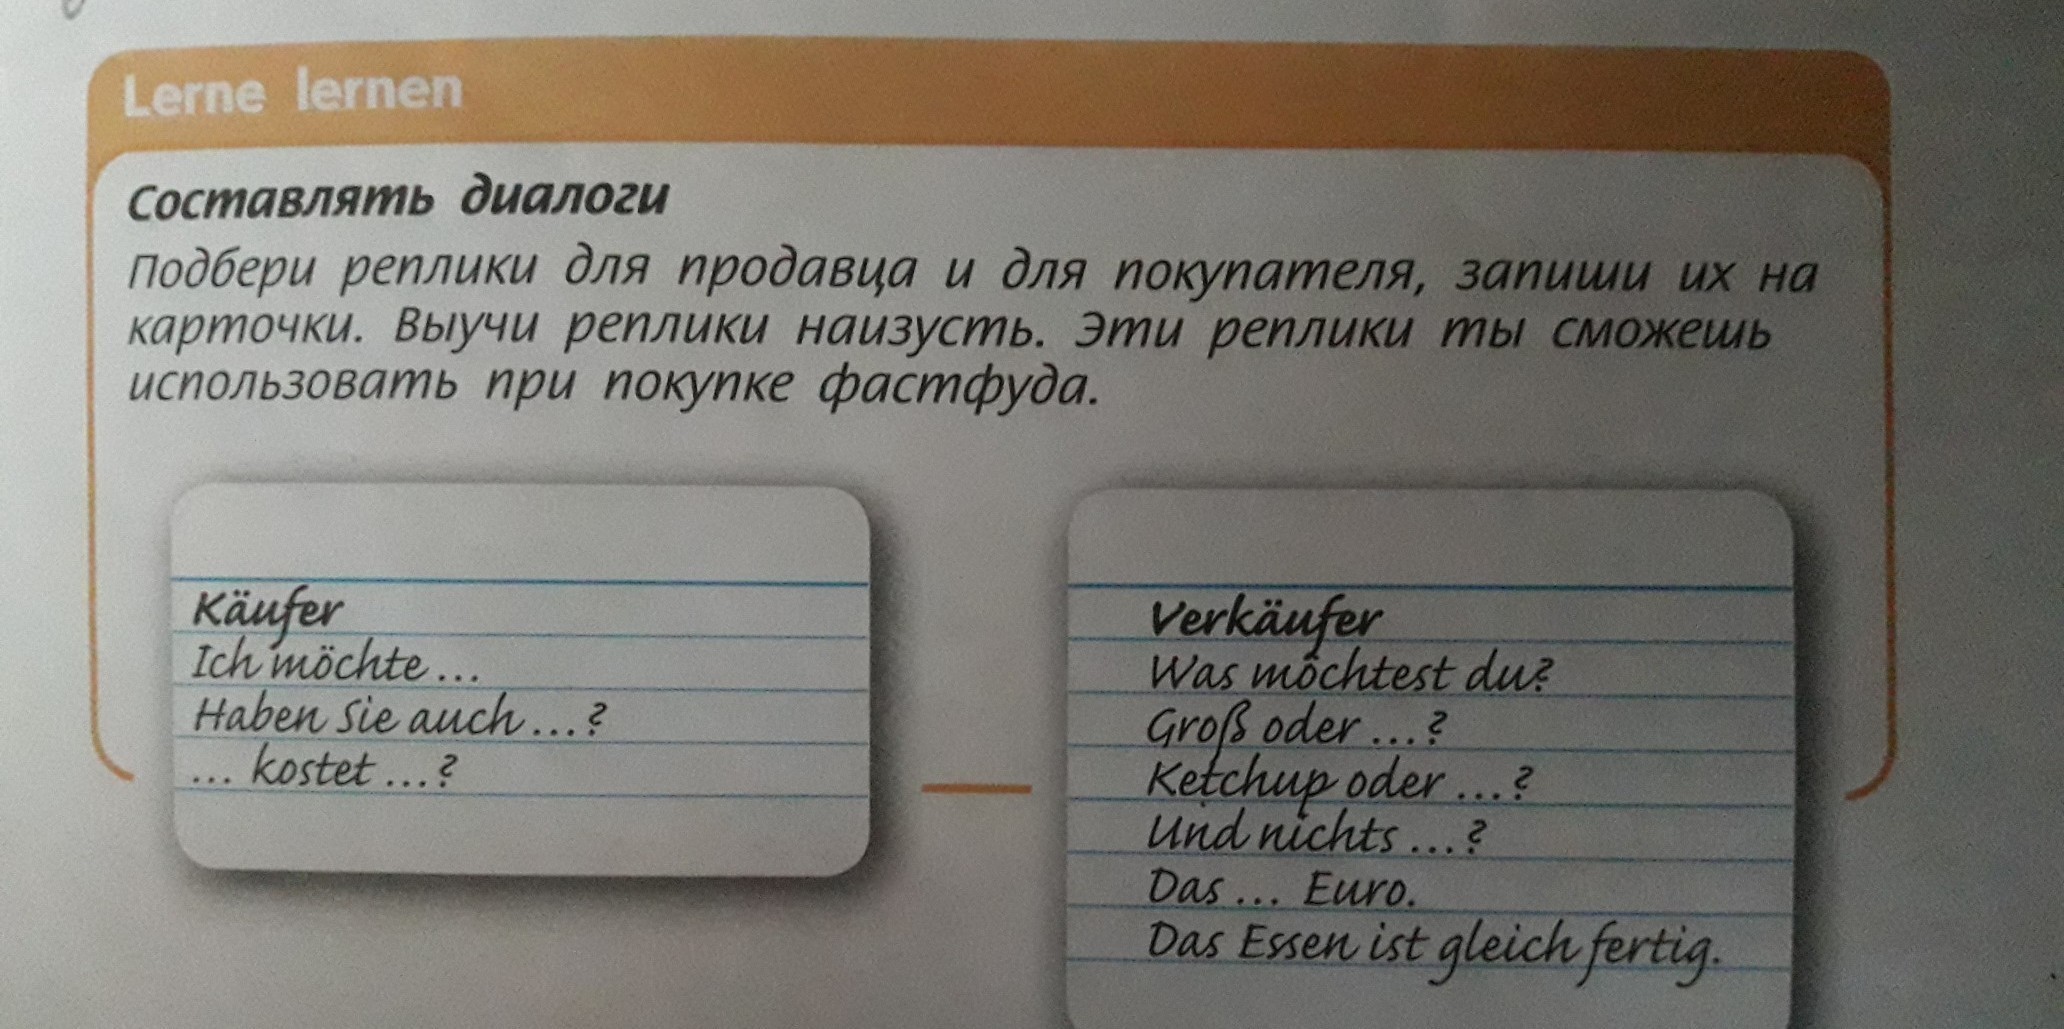 Lerne lernen
Составлять диалоги
Подбери реплики для продавца и для покупателя, запиши их на
карточки. Выучи реплики наизусть. Эти реплики ты сможешь
использовать при покупке фастфуда.
Käufer
Ich möchte ...
Haben Sie auch ... ?
... kostet ... ?
Verkäufer
Was möchtest du?
Groß oder ... ?
Ketchup oder ... ?
Und nichts ... ?
Das ... Euro.
Das Essen ist gleich fertig.